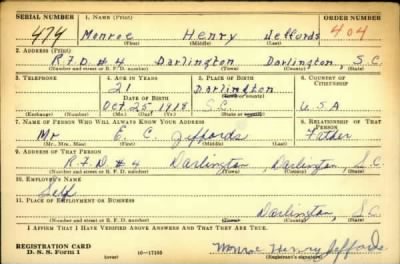 SERIAL NUMBER 1. NAME (Print) ORDER NUMBER
479 Monroe Henry Jeffords 404
(First) (Middle) (Last)
2. ADDRESS (Print)
R.F.D #4 Darlington Darlington, S.C.
(Number and street or R. F. D. number) (Town) (County) (State)
3. TELEPHONE 4. AGE IN YEARS 5. PLACE OF BIRTH 6. COUNTRY OF CITIZENSHIP
21 Darlington
DATE OF BIRTH (Town or county)
Oct 25, 1918 S.C. U S A
(Exchange) (Number) (Mo.) (Day) (Yr.) (State or country)
7. NAME OF PERSON WHO WILL ALWAYS KNOW YOUR ADDRESS 8. RELATIONSHIP OF THAT PERSON
Mr E. C. Jeffords Father
(Mr., Mrs., Miss) (First) (Middle) (Last)
9. ADDRESS OF THAT PERSON
R.F.D #4 Darlington, Darlington, S.C.
(Number and street or R. F. D. number) (Town) (County) (State)
10. EMPLOYER'S NAME
Self
11. PLACE OF EMPLOYMENT OR BUSINESS
Darlington, S.C.
(Number and street or R. F. D. number) (Town) (County) (State)
I AFFIRM THAT I HAVE VERIFIED ABOVE ANSWERS AND THAT THEY ARE TRUE.
REGISTRATION CARD
D. S. S. Form 1 (over) 16—17105
Monroe Henry Jeffords
(Registrant's signature)